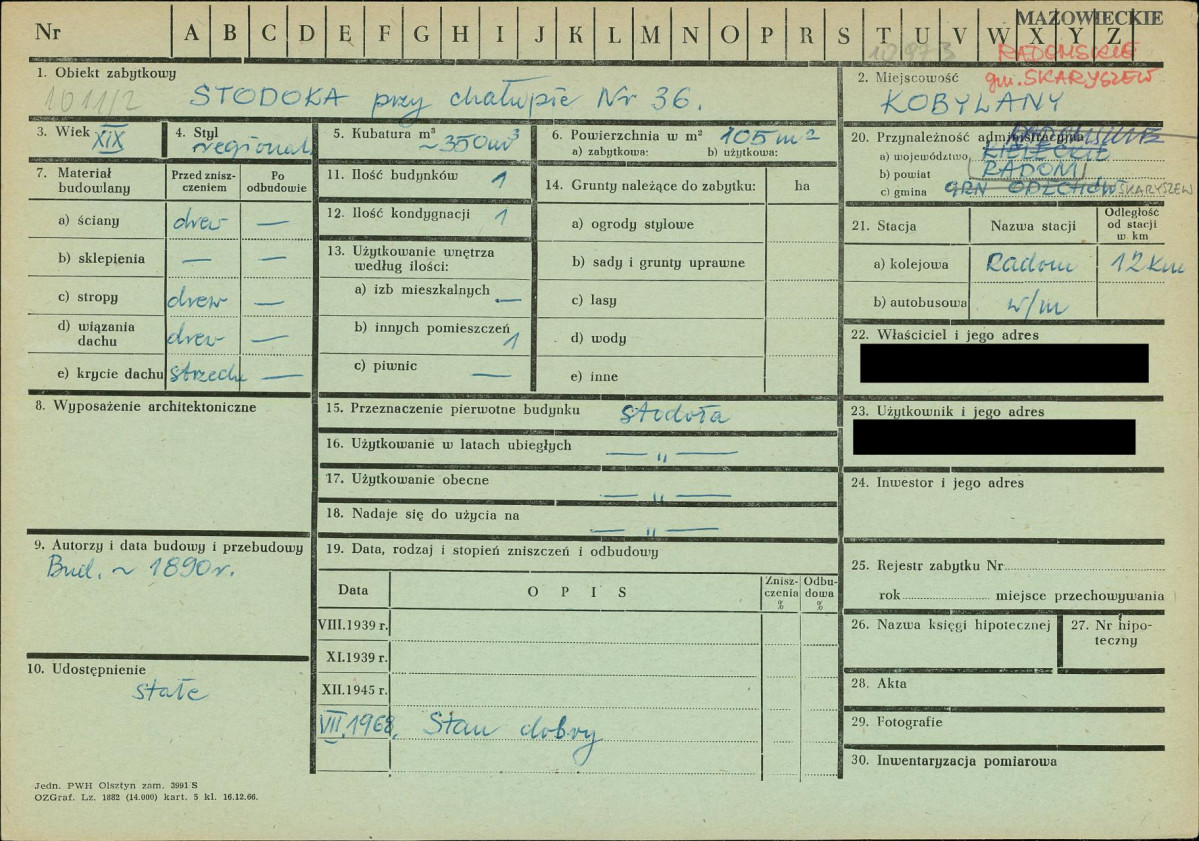 Nr A B C D E F G H I J K L M N O P R S T U V W X Y Z
MAZOWIECKIE
12873
RADOMSKIE
gm. SKARYSZEW
1. Obiekt zabytkowy
1011/2
STODOŁA przy chałupie Nr 36.
2. Miejscowość
KOBYLANY
3. Wiek XIX
4. Styl regional.
5. Kubatura m³ ~350m³
6. Powierzchnia w m² 105 m²
a) zabytkowa: b) użytkowa:
7. Materiał budowlany
Przed zniszczeniem
Po odbudowie
a) ściany drew —
b) sklepienia — —
c) stropy drew —
d) wiązania dachu drew —
e) krycie dachu strzecha —
8. Wyposażenie architektoniczne
9. Autorzy i data budowy i przebudowy
Bud. ~ 1890r.
10. Udostępnienie
stałe
11. Ilość budynków 1
12. Ilość kondygnacji 1
13. Użytkowanie wnętrza według ilości:
a) izb mieszkalnych —
b) innych pomieszczeń 1
c) piwnic —
14. Grunty należące do zabytku: ha
a) ogrody stylowe
b) sady i grunty uprawne
c) lasy
d) wody
e) inne
15. Przeznaczenie pierwotne budynku stodoła
16. Użytkowanie w latach ubiegłych — „ —
17. Użytkowanie obecne — „ —
18. Nadaje się do użycia na — „ —
19. Data, rodzaj i stopień zniszczeń i odbudowy
Data OPIS Zniszczenia % Odbudowa %
VIII.1939 r.
XI.1939 r.
XII.1945 r.
VII.1968. Stan dobry
20. Przynależność administracyjna
a) województwo KIELECKIE
b) powiat RADOM
c) gmina GRN ODECHÓW SKARYSZEW
21. Stacja Nazwa stacji Odległość od stacji w km
a) kolejowa Radom 12 km
b) autobusowa w/m
22. Właściciel i jego adres
23. Użytkownik i jego adres
24. Inwestor i jego adres
25. Rejestr zabytku Nr
rok miejsce przechowywania
26. Nazwa księgi hipotecznej
27. Nr hipoteczny
28. Akta
29. Fotografie
30. Inwentaryzacja pomiarowa
Jedn. PWH Olsztyn zam. 3991 S
OZGraf. Lz. 1882 (14.000) kart. 5 kl. 16.12.66.